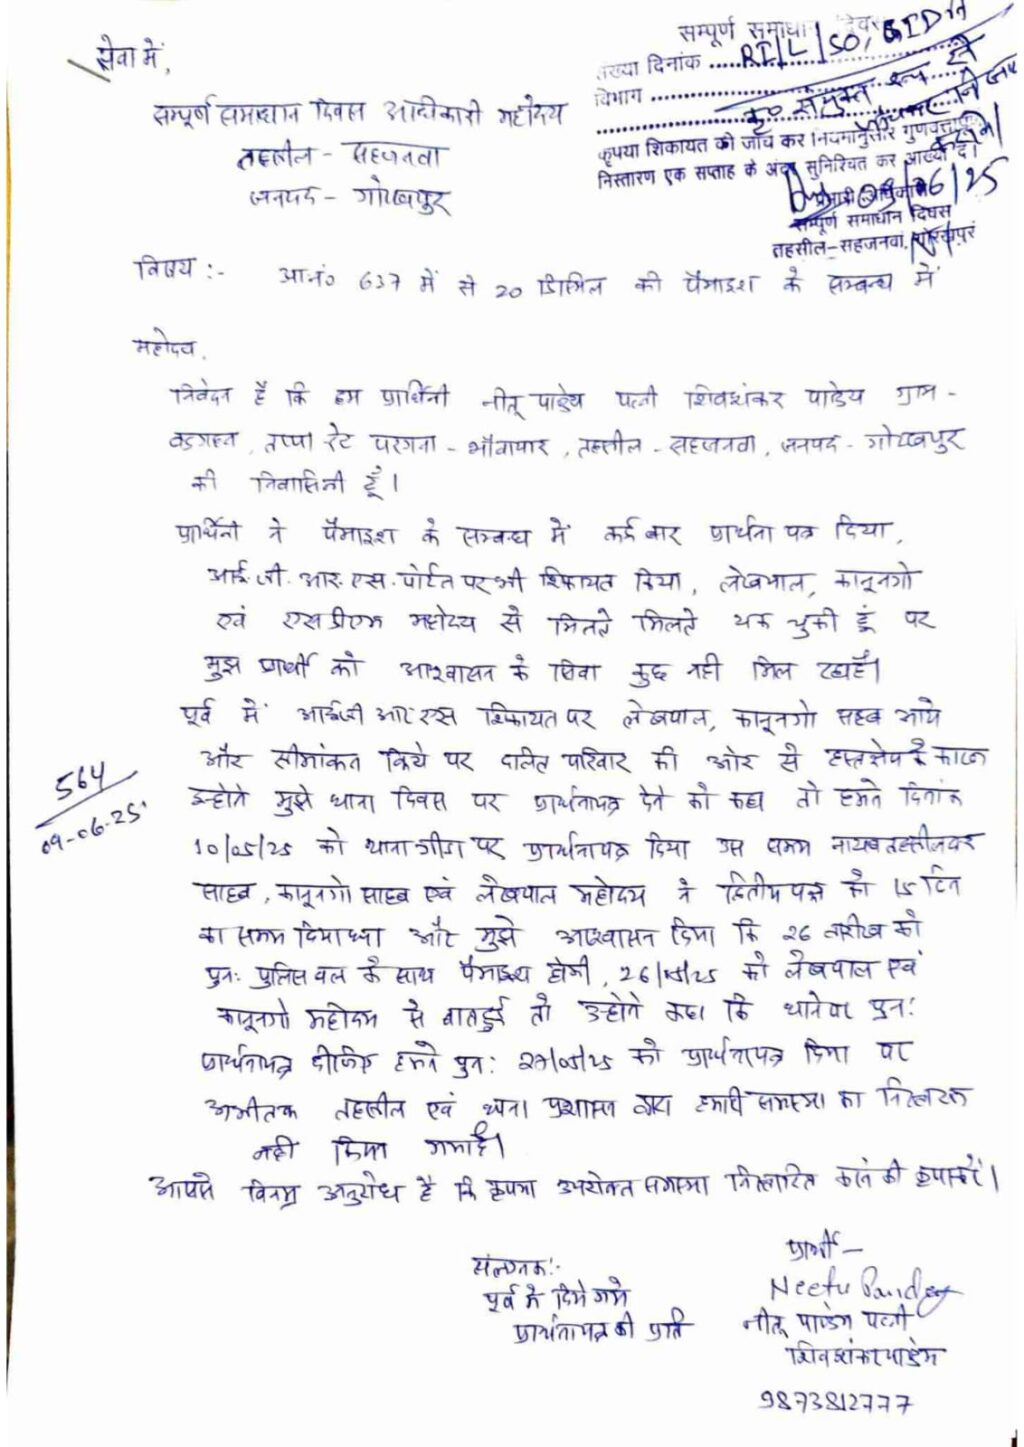 सम्पूर्ण समाधान दिवस
संख्या दिनांक ........ RI/L/SO, GIDA
विभाग ........
कृ० संयुक्त
कृपया शिकायत की जाँच कर नियमानुसार गुणवत्ता
निस्तारण एक सप्ताह के अंदर सुनिश्चित कर आख्या दें।
09/06/25
सम्पूर्ण समाधान दिवस
तहसील-सहजनवां, गोरखपुर
सेवा में,
सम्पूर्ण समाधान दिवस अधिकारी महोदय
तहसील - सहजनवा
जनपद - गोरखपुर
विषय :- आ०नं० 637 में से 20 डिसमिल की पैमाइश के सम्बन्ध में
महोदय,
निवेदन है कि हम प्रार्थिनी नीतू पाण्डेय पत्नी शिवशंकर पाडेय ग्राम -
तप्पा रेट परगना - भौवापार, तहसील - सहजनवा, जनपद - गोरखपुर
की निवासिनी हूँ।
प्रार्थिनी ने पैमाइश के सम्बन्ध में कई बार प्रार्थना पत्र दिया,
आई. जी. आर. एस. पोर्टल पर भी शिकायत किया, लेखपाल, कानूनगो
एवं एसडीएम महोदय से मिलते मिलते थक चुकी हूं पर
मुझ प्रार्थी को आश्वासन के सिवा कुछ नही मिल रहा है।
पूर्व में आईजीआरएस शिकायत पर लेखपाल, कानूनगो साहब आये
और सीमांकन किये पर दलित परिवार की ओर से हस्तक्षेप के कारण
उन्होने मुझे थाना दिवस पर प्रार्थनापत्र देने को कहा तो हमने दिनांक
564
09-06-25
10/05/25 को थाना गीडा पर प्रार्थनापत्र दिया उस समय नायब तहसीलदार
साहब, कानूनगो साहब एवं लेखपाल महोदय ने द्वितीय पक्ष को 15 दिन
का समय दिया था और मुझे आश्वासन दिया कि 26 तारीख को
पुनः पुलिस बल के साथ पैमाइश होगी, 26/05/25 को लेखपाल एवं
कानूनगो महोदय से बात हुई तो उन्होने कहा कि थाने पर पुनः
प्रार्थनापत्र दीजिए हमने पुनः 27/05/25 को प्रार्थनापत्र दिया पर
अभीतक तहसील एवं थाना प्रशासन द्वारा हमारी समस्या का निस्तारण
नही किया गया है।
आपसे विनम्र अनुरोध है कि कृपया उपरोक्त समस्या निस्तारित करने की कृपा करें।
संलग्नक:-
पूर्व में दिये गये
प्रार्थनापत्र की प्रति
प्रार्थी -
Neetu Pandey
नीतू पाण्डेय पत्नी
शिवशंकर पाण्डेय
9873812777